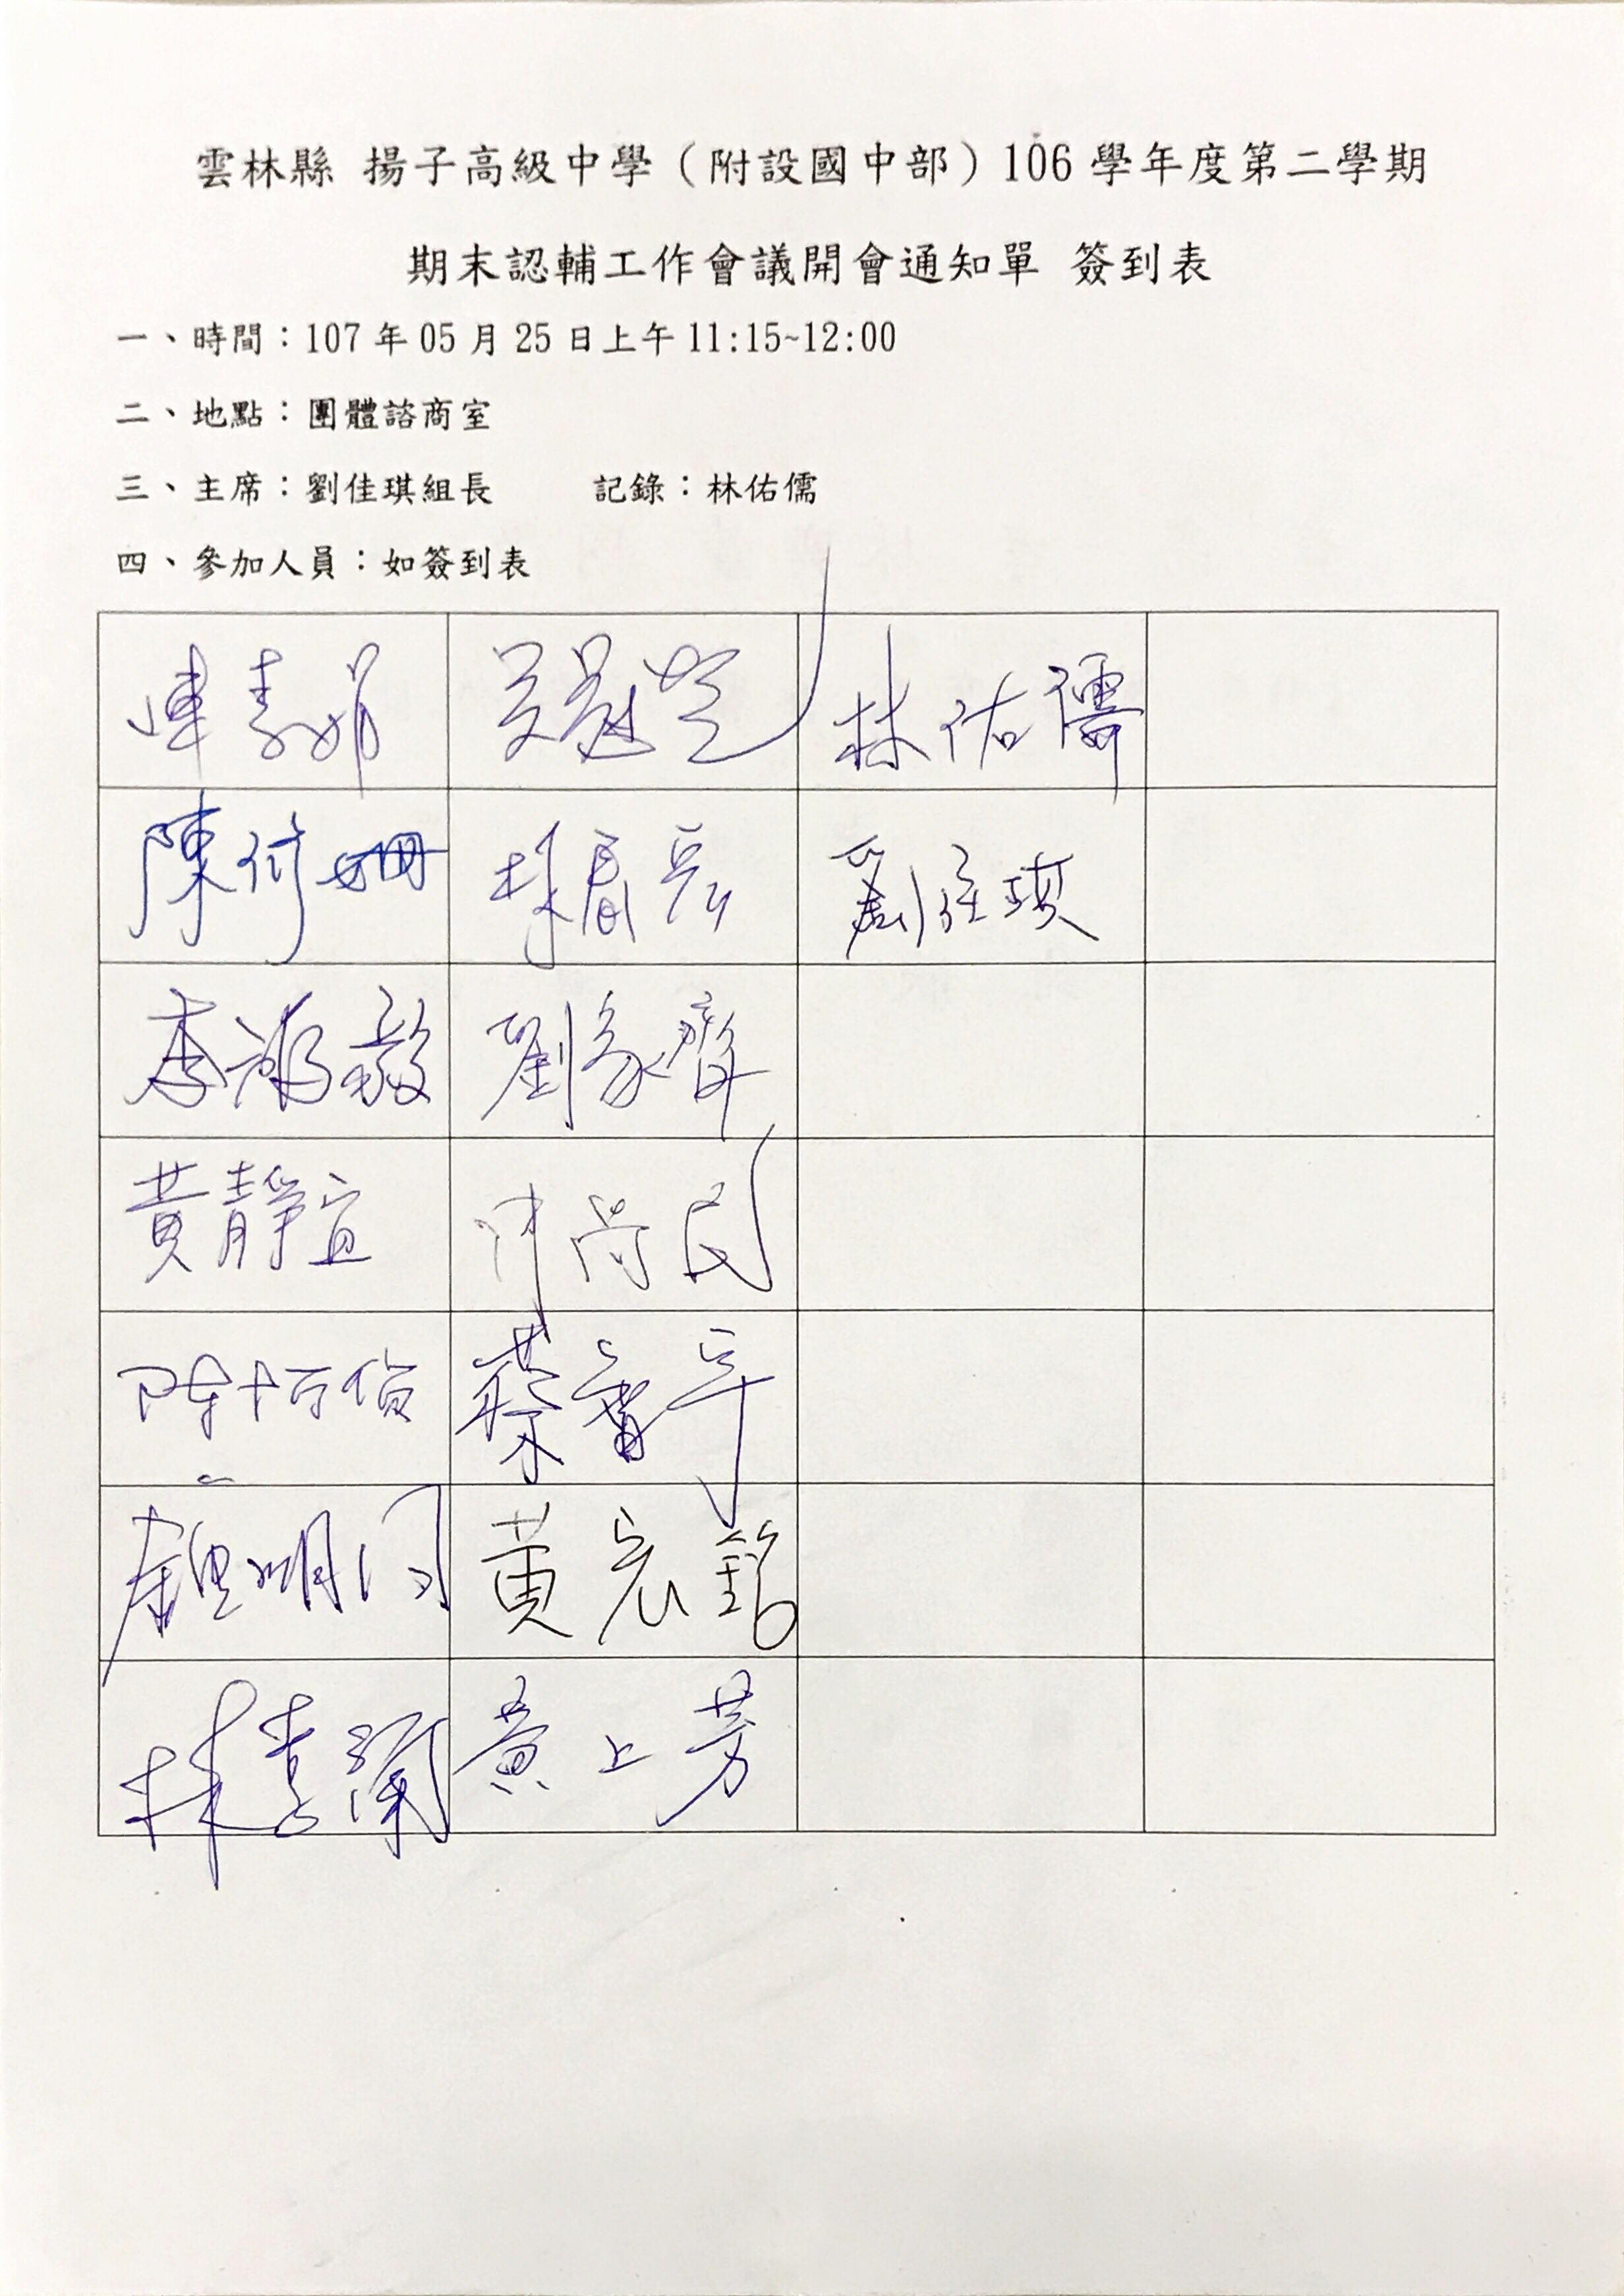 雲林縣 揚子高級中學（附設國中部）106 學年度第二學期
期末認輔工作會議開會通知單 簽到表
一、時間：107 年 05 月 25 日上午 11:15~12:00
二、地點：團體諮商室
三、主席：劉佳琪組長 記錄：林佑儒
四、參加人員：如簽到表
林佑儒
陳 姍 劉佳琪
李 毅 劉家齊
黃靜宜 尚民
蔡
明 黃宏銘
林 蘭 黃上芳